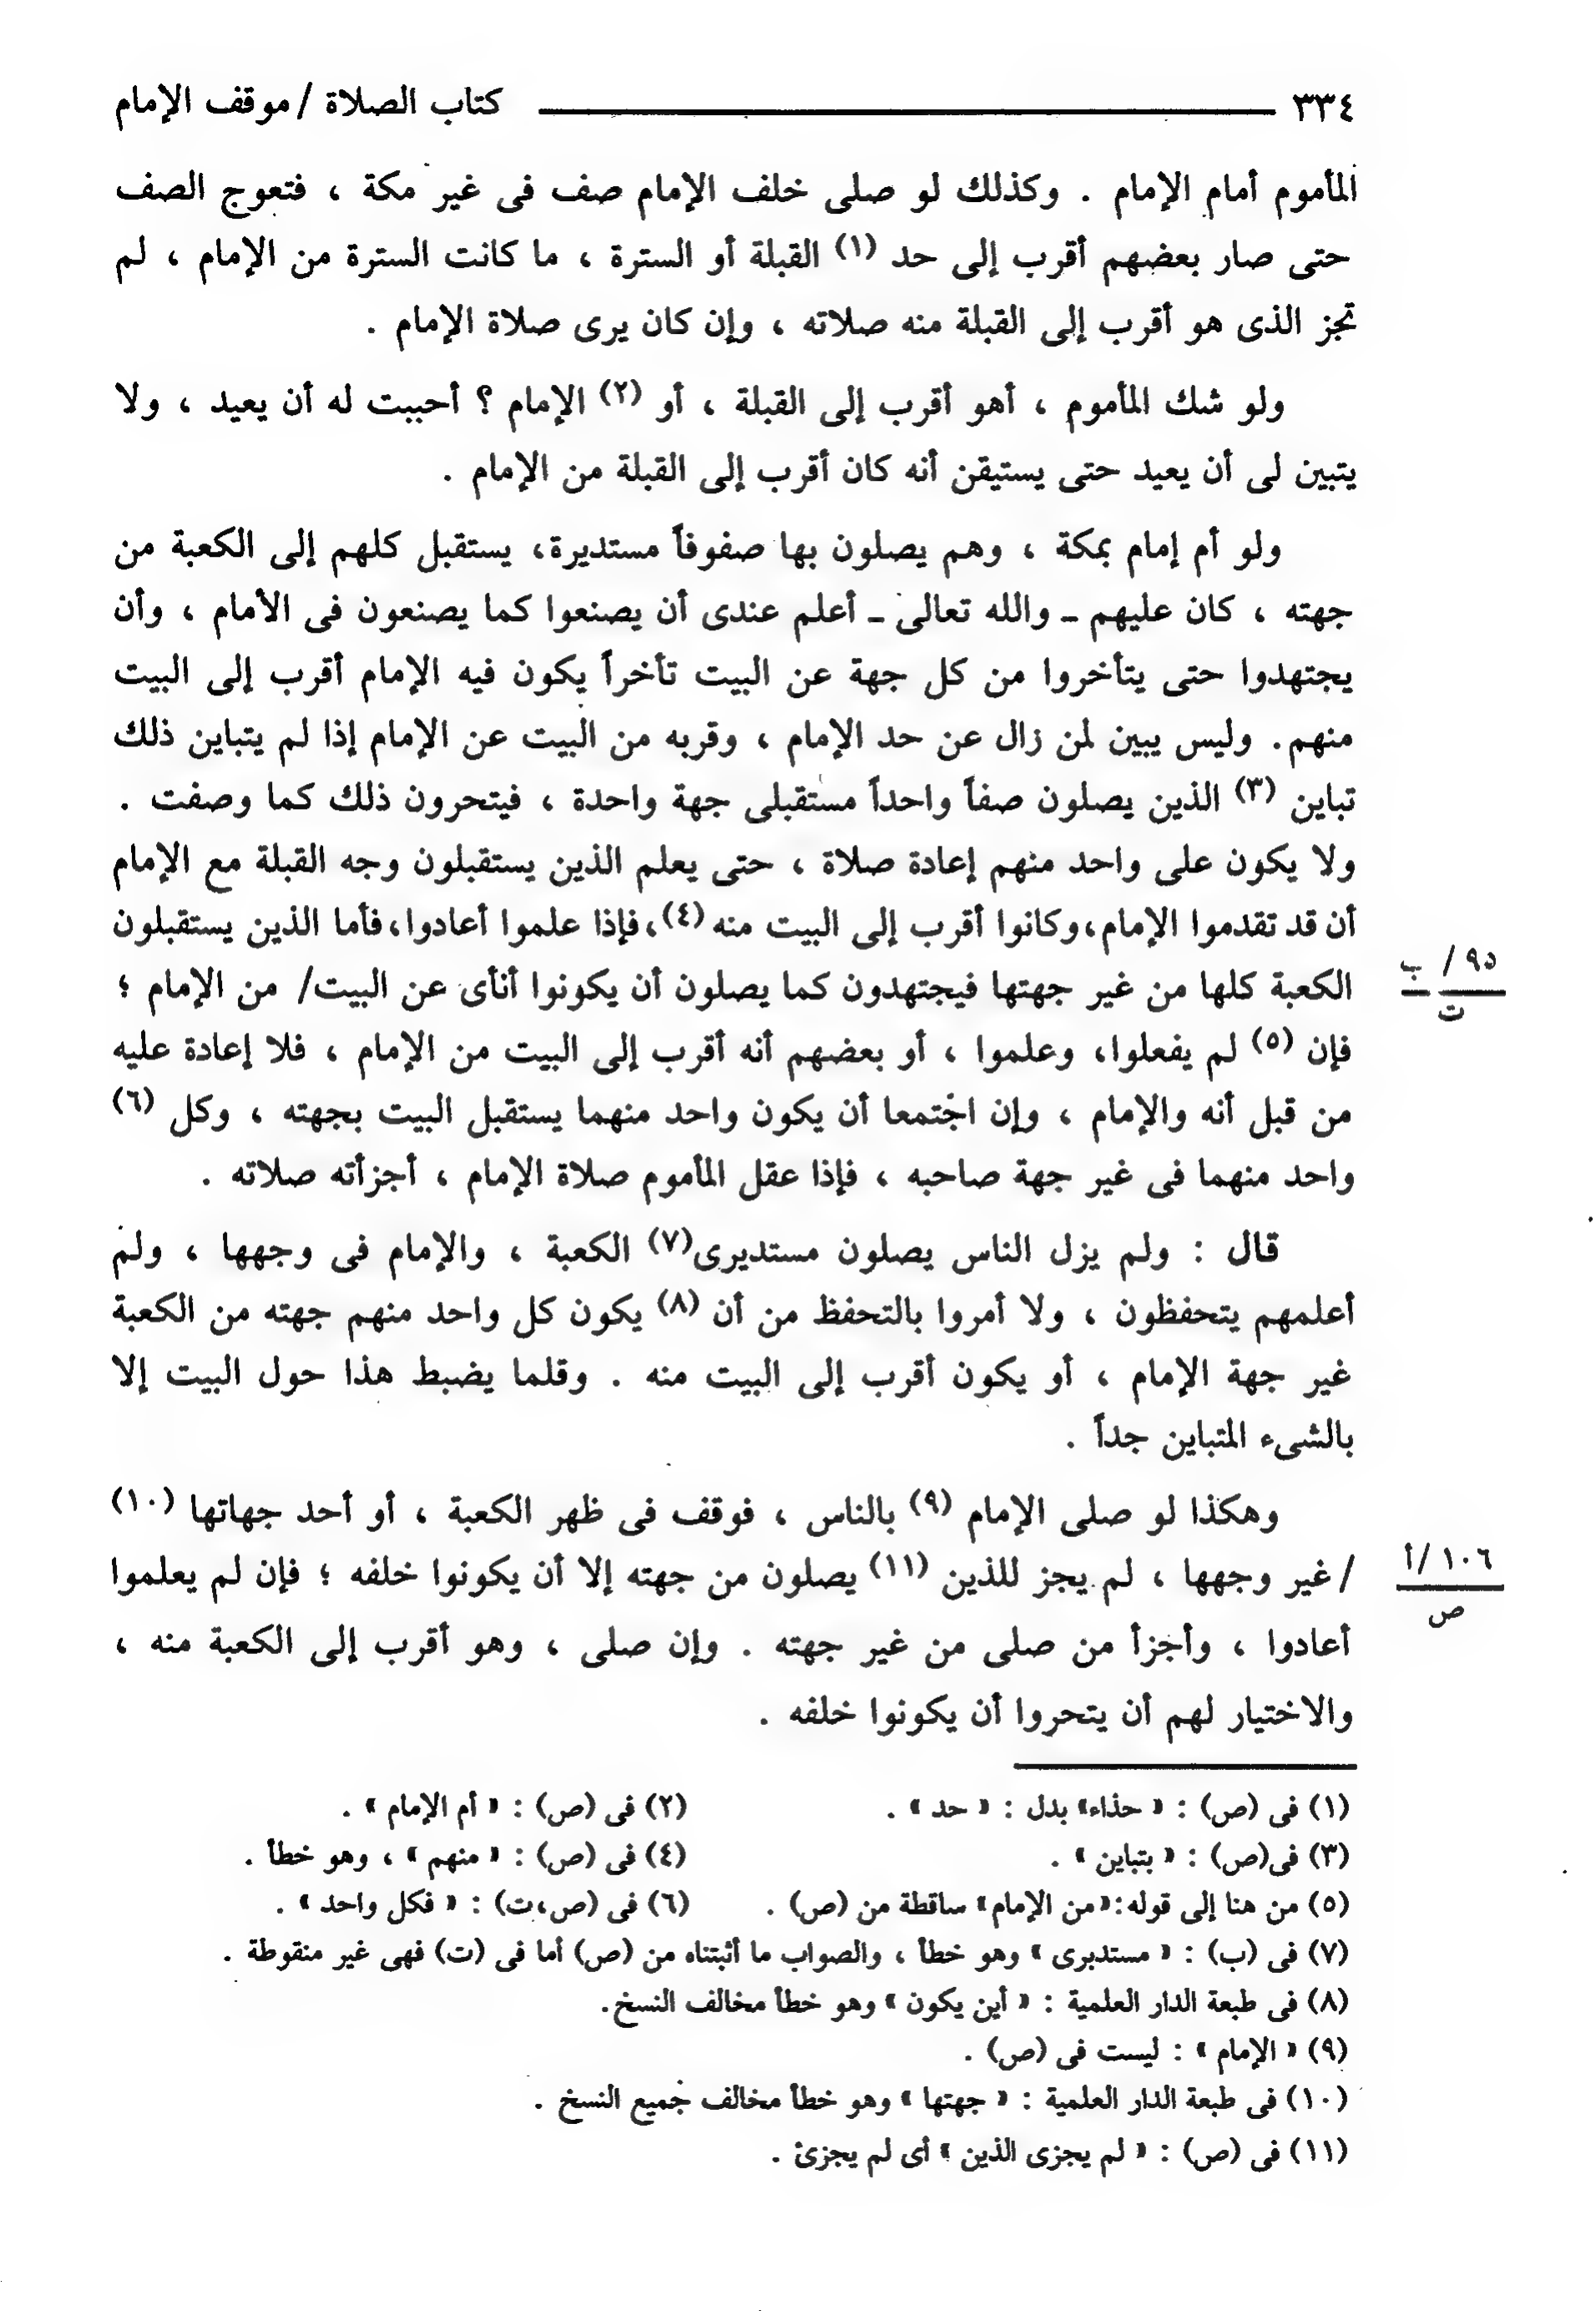 ٣٣٤ كتاب الصلاة / موقف الإمام
المأموم أمام الإمام . وكذلك لو صلى خلف الإمام صف فى غير مكة ، فتعوج الصف
حتى صار بعضهم أقرب إلى حد (١) القبلة أو السترة ، ما كانت السترة من الإمام ، لم
تجز الذى هو أقرب إلى القبلة منه صلاته ، وإن كان يرى صلاة الإمام .
ولو شك المأموم ، أهو أقرب إلى القبلة ، أو (٢) الإمام ؟ أحببت له أن يعيد ، ولا
يتبين لى أن يعيد حتى يستيقن أنه كان أقرب إلى القبلة من الإمام .
ولو أم إمام بمكة ، وهم يصلون بها صفوفاً مستديرة، يستقبل كلهم إلى الكعبة من
جهته ، كان عليهم ـ والله تعالى ـ أعلم عندى أن يصنعوا كما يصنعون فى الأمام ، وأن
يجتهدوا حتى يتأخروا من كل جهة عن البيت تأخراً يكون فيه الإمام أقرب إلى البيت
منهم. وليس يبين لمن زال عن حد الإمام ، وقربه من البيت عن الإمام إذا لم يتباين ذلك
تباين (٣) الذين يصلون صفاً واحداً مستقبلى جهة واحدة ، فيتحرون ذلك كما وصفت .
ولا يكون على واحد منهم إعادة صلاة ، حتى يعلم الذين يستقبلون وجه القبلة مع الإمام
أن قد تقدموا الإمام،وكانوا أقرب إلى البيت منه (٤)،فإذا علموا أعادوا،فأما الذين يستقبلون
٩٥ / ب
ت
الكعبة كلها من غير جهتها فيجتهدون كما يصلون أن يكونوا أنأى عن البيت/ من الإمام ؛
فإن (٥) لم يفعلوا، وعلموا ، أو بعضهم أنه أقرب إلى البيت من الإمام ، فلا إعادة عليه
من قبل أنه والإمام ، وإن اجتمعا أن يكون واحد منهما يستقبل البيت بجهته ، وكل (٦)
واحد منهما فى غير جهة صاحبه ، فإذا عقل المأموم صلاة الإمام ، أجزأته صلاته .
قال : ولم يزل الناس يصلون مستديرى(٧) الكعبة ، والإمام فى وجهها ، ولم
أعلمهم يتحفظون ، ولا أمروا بالتحفظ من أن (٨) يكون كل واحد منهم جهته من الكعبة
غير جهة الإمام ، أو يكون أقرب إلى البيت منه . وقلما يضبط هذا حول البيت إلا
بالشىء المتباين جداً .
وهكذا لو صلى الإمام (٩) بالناس ، فوقف فى ظهر الكعبة ، أو أحد جهاتها (١٠)
١٠٦ /أ
ص
/ غير وجهها ، لم يجز للذين (١١) يصلون من جهته إلا أن يكونوا خلفه ؛ فإن لم يعلموا
أعادوا ، وأجزأ من صلى من غير جهته . وإن صلى ، وهو أقرب إلى الكعبة منه ،
والاختيار لهم أن يتحروا أن يكونوا خلفه .
(١) فى (ص) : « حذاء» بدل : « حد » . (٢) فى (ص) : « أم الإمام » .
(٣) فى(ص) : « بتباين » . (٤) فى (ص) : « منهم » ، وهو خطأ .
(٥) من هنا إلى قوله:«من الإمام» ساقطة من (ص) . (٦) فى (ص،ت) : « فكل واحد » .
(٧) فى (ب) : « مستدبرى » وهو خطأ ، والصواب ما أثبتناه من (ص) أما فى (ت) فهى غير منقوطة .
(٨) فى طبعة الدار العلمية : « أين يكون » وهو خطأ مخالف النسخ.
(٩) « الإمام » : ليست فى (ص) .
(١٠) فى طبعة الدار العلمية : « جهتها » وهو خطأ مخالف جميع النسخ .
(١١) فى (ص) : « لم يجزى الذين » أى لم يجزئ .